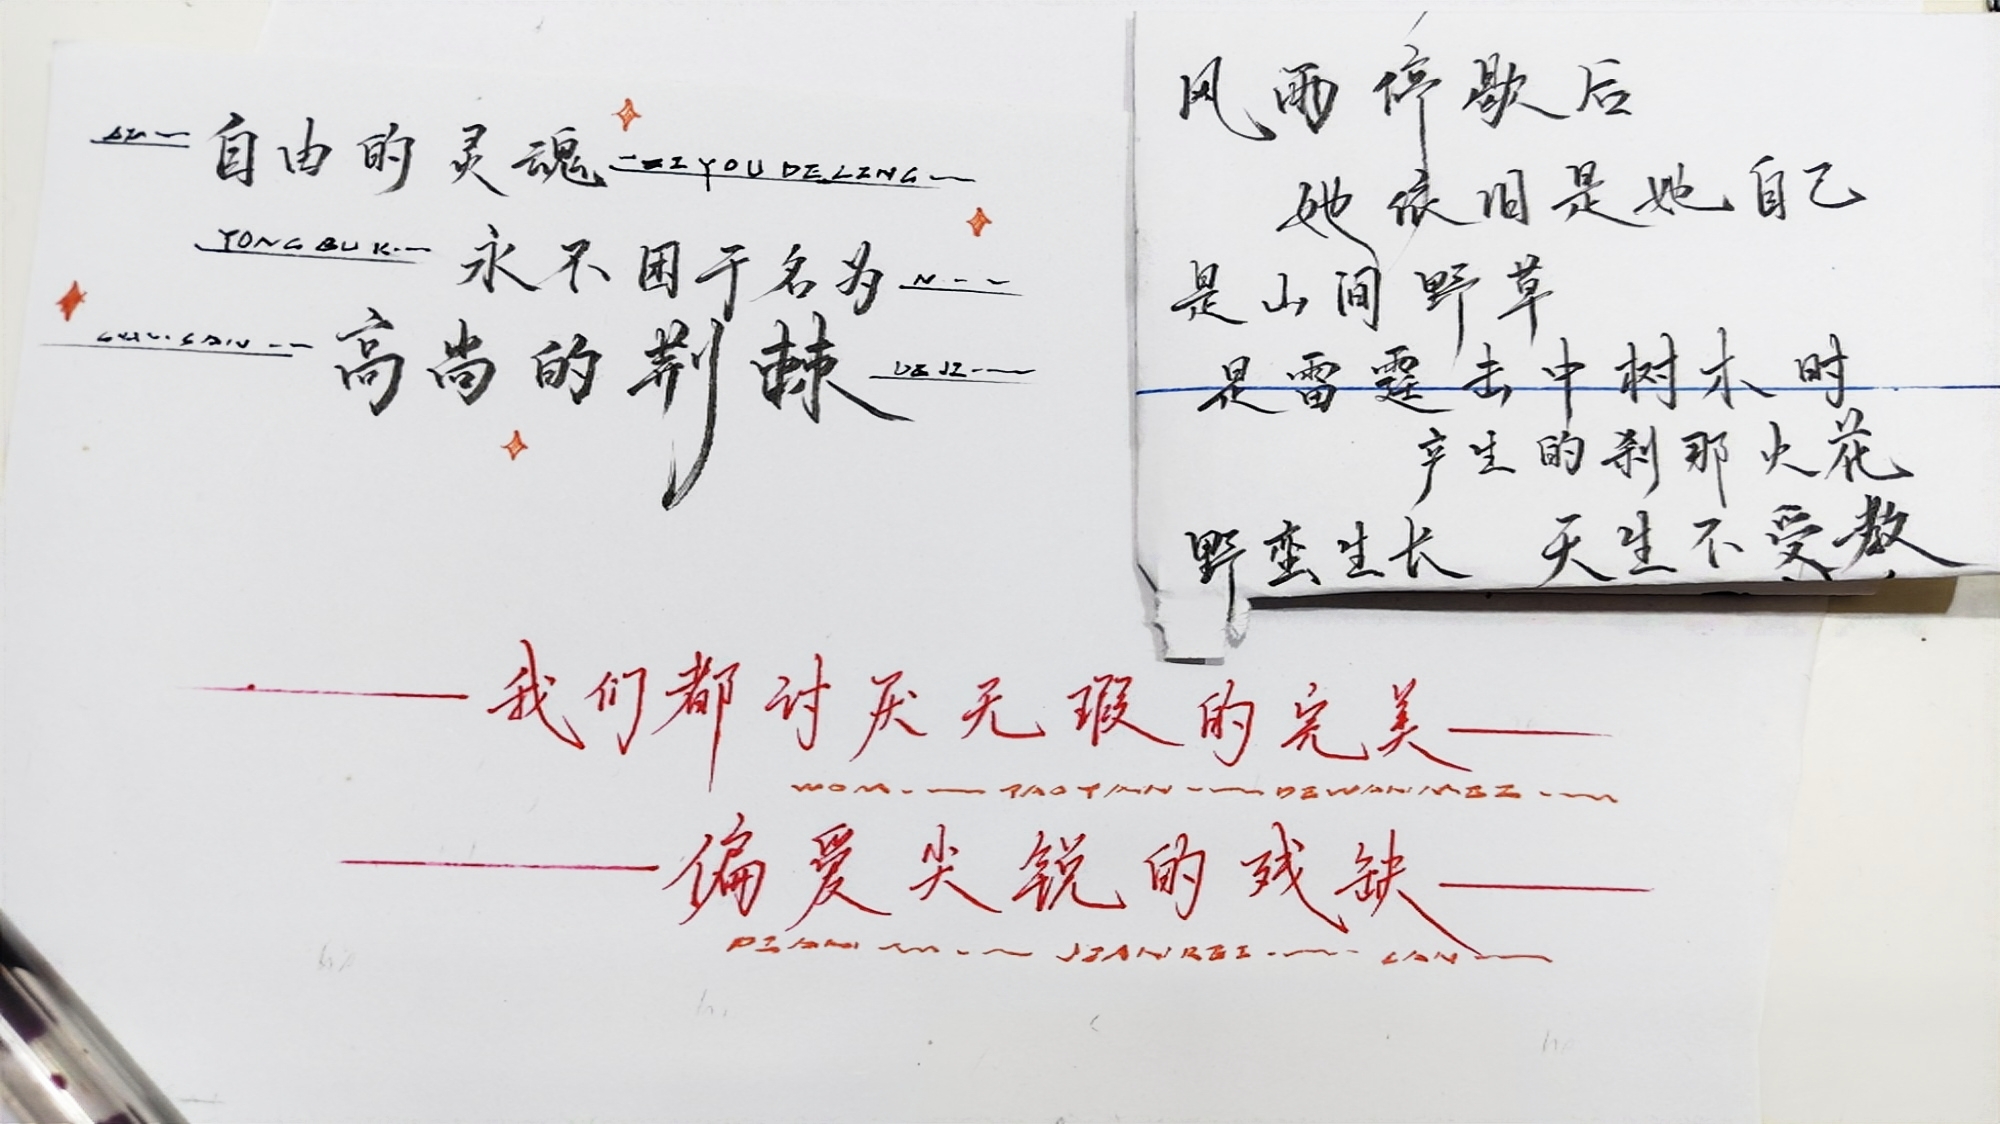 自由的灵魂 ZIYOUDELING
YONGBUK 永不困于名为 N
高尚的荆棘 DEJI
风雨停歇后
她依旧是她自己
是山间野草
是雷霆击中树木时
产生的刹那火花
野蛮生长 天生不受教
我们都讨厌无瑕的完美
WOM TAOYAN DEWANMEI
偏爱尖锐的残缺
PIAN JIANRUI CAN